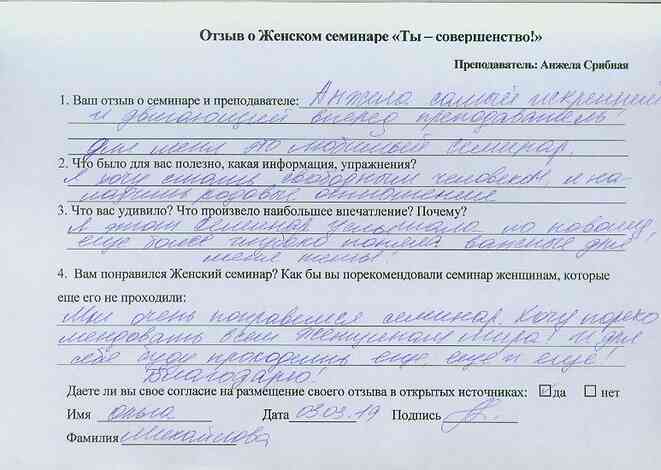 Отзыв о Женском семинаре «Ты – совершенство!»
Преподаватель: Анжела Срибная
1. Ваш отзыв о семинаре и преподавателе: Анжела самый искренний
и двигающий вперед преподаватель!
Для меня это любимый семинар.
2. Что было для вас полезно, какая информация, упражнения?
Я хочу стать свободным человеком, и на-
ладить родовые отношения
3. Что вас удивило? Что произвело наибольшее впечатление? Почему?
Я этот семинар по новому,
еще более глубоко важные для
меня темы!
4. Вам понравился Женский семинар? Как бы вы порекомендовали семинар женщинам, которые
еще его не проходили:
Мне очень понравился семинар. Хочу пореко
мендовать всем женщинам мира! И для
себе буду проходить еще, еще и еще!
Благодарю!
Даете ли вы свое согласие на размещение своего отзыва в открытых источниках: да нет
Имя Ольга Дата 03.03.19 Подпись
Фамилия Михайлова